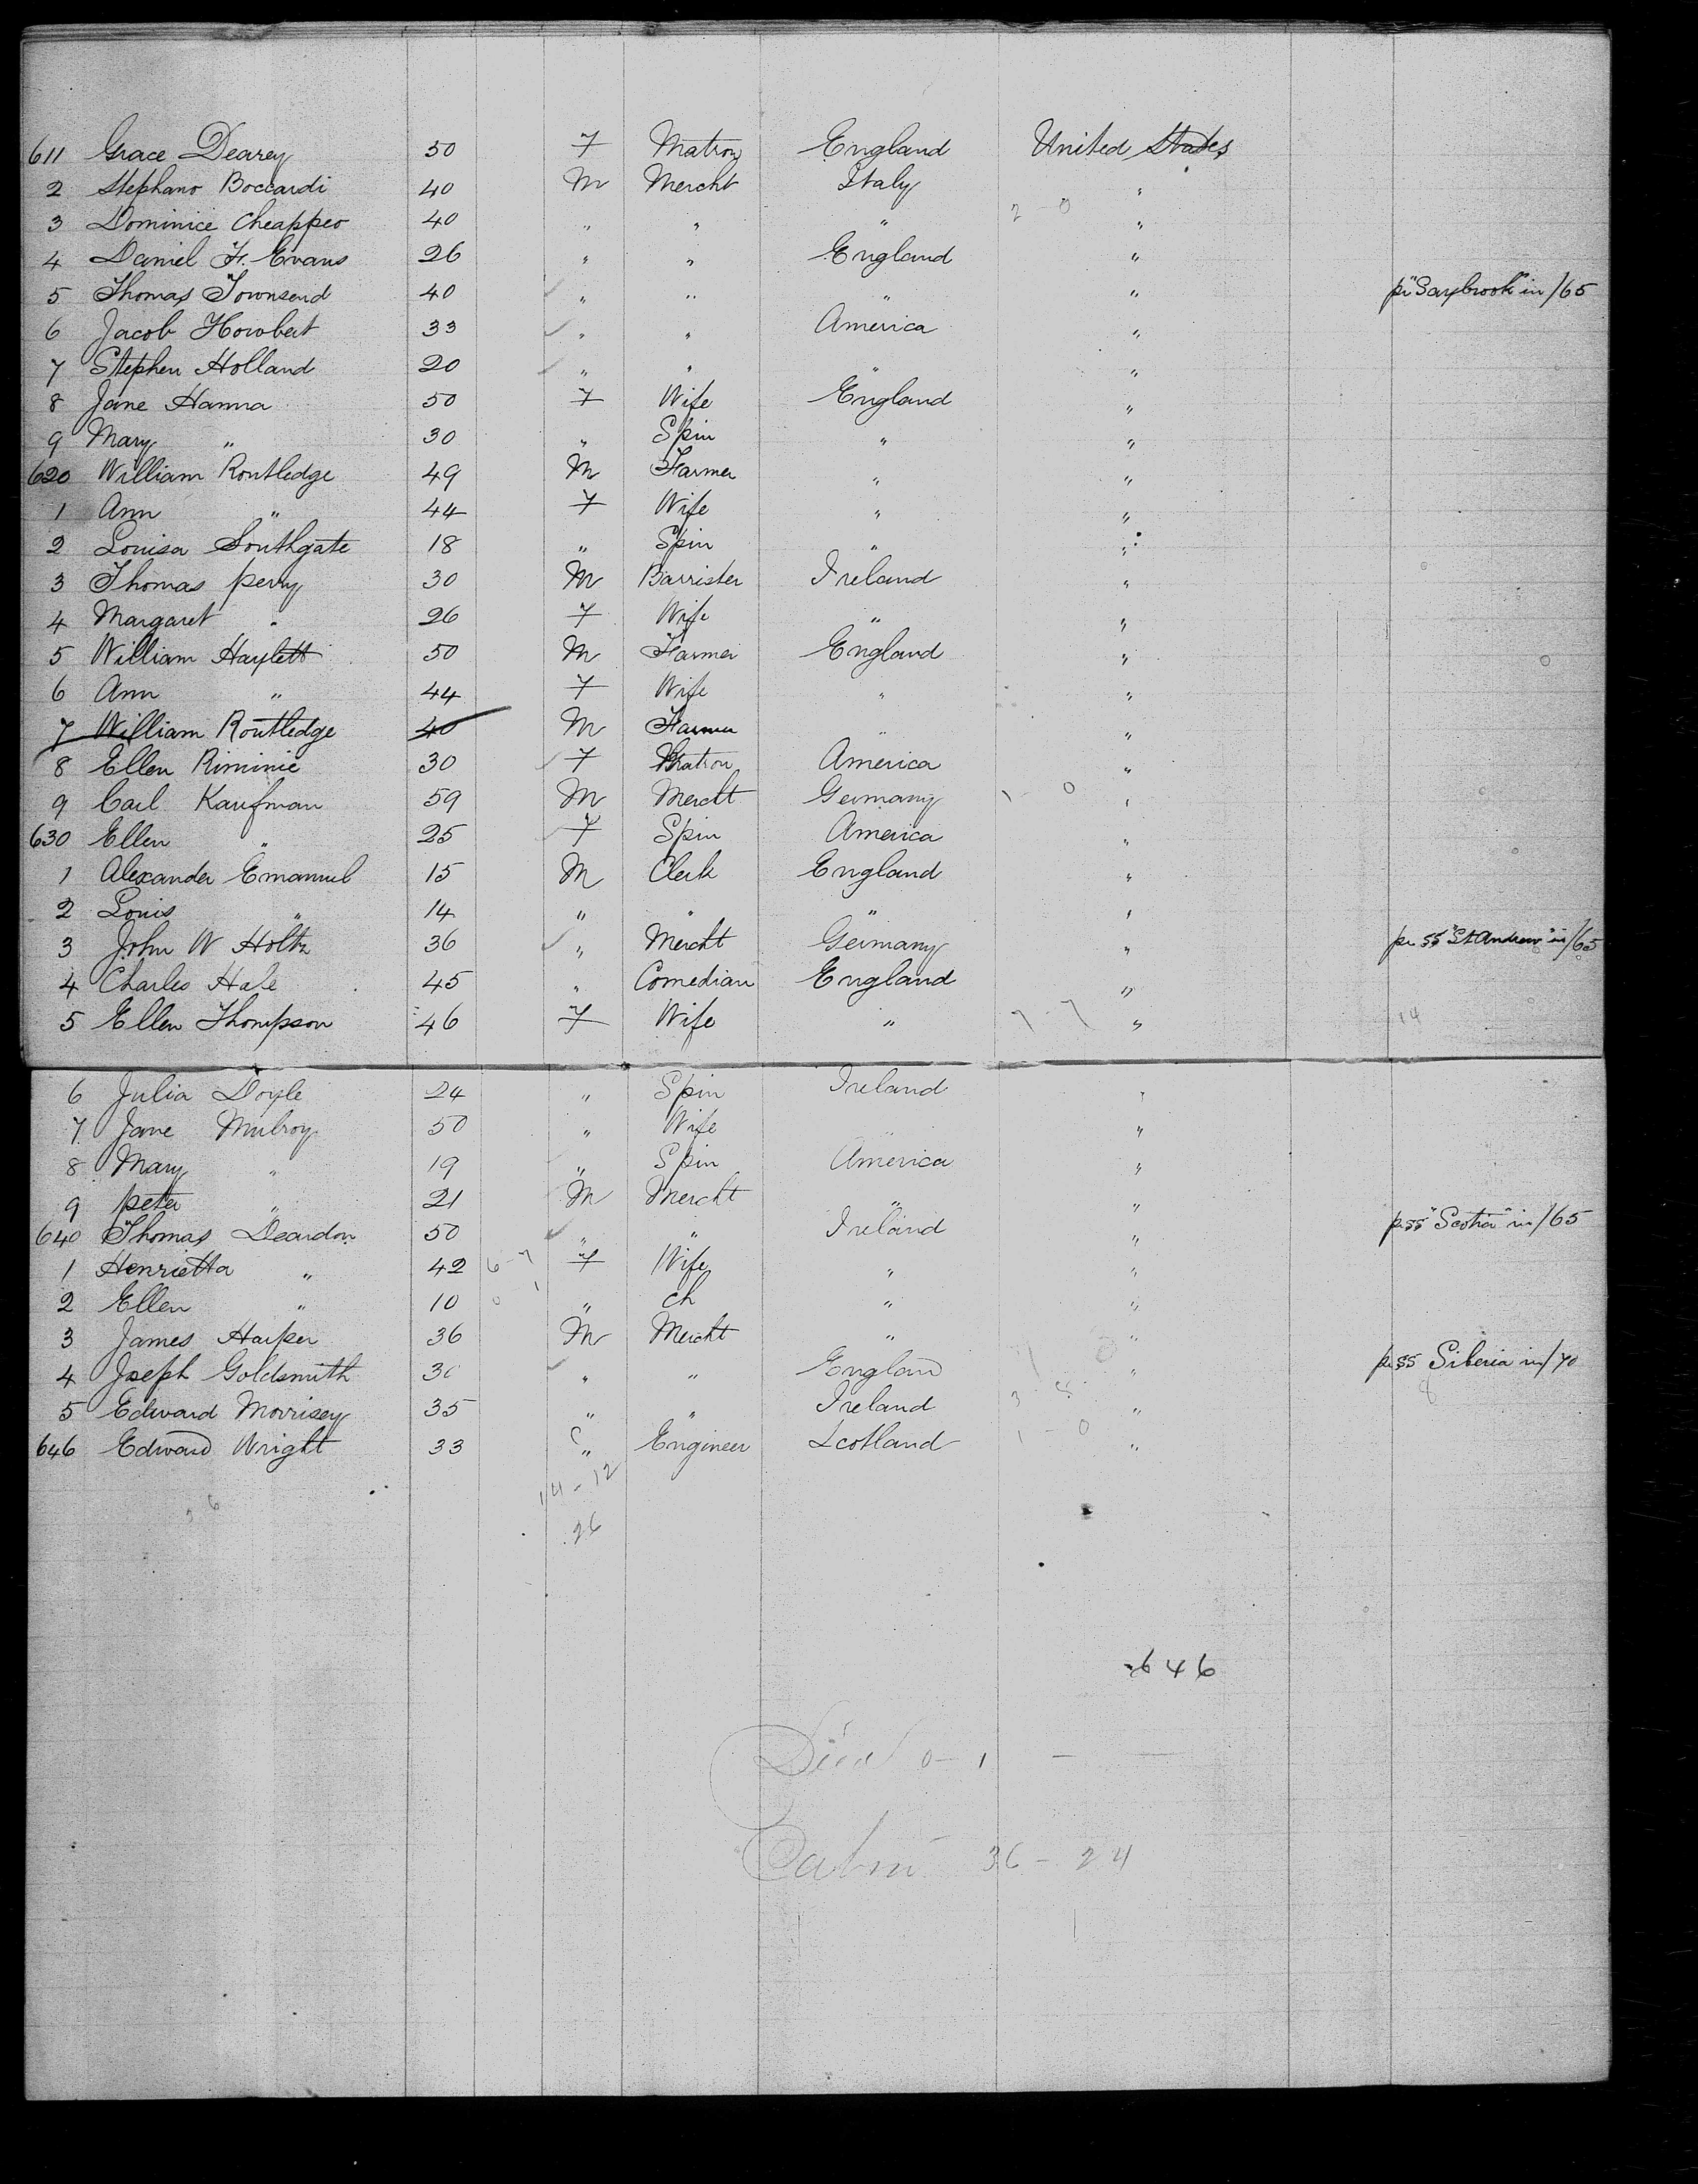 611 Grace Dearey 50 F Matron England United States
2 Stephano Boccardi 40 M Mercht Italy "
3 Dominice Cheappeo 40 " " " 2 - 0 "
4 Daniel F. Evans 26 " " England "
5 Thomas Townsend 40 ✓ " " " " pr "Saybrook" in /65
6 Jacob Howbert 33 ✓ " " America "
7 Stephen Holland 20 ✓ " " " "
8 Jane Hanna 50 F Wife England "
9 Mary " 30 " Spin " "
620 William Routledge 49 M Farmer " "
1 Ann " 44 F Wife " "
2 Louisa Southgate 18 " Spin " "
3 Thomas perry 30 M Barrister Ireland "
4 Margaret " 26 F Wife " "
5 William Haylett 50 M Farmer England "
6 Ann " 44 F Wife " "
7 William Routledge 40 M Farmer " "
8 Ellen Riminie 30 ✓ F Matron America "
9 Carl Kaufman 59 M Mercht Germany 1 - 0 "
630 Ellen " 25 ✓ F Spin America "
1 Alexander Emanuel 15 M Clerk England "
2 Louis " 14 " " " "
3 John W Holtz 36 ✓ " Mercht Germany " pr SS "St Andrew" in /65
4 Charles Hale 45 " Comedian England "
5 Ellen Thompson 46 F Wife " 7 - 7 " 14
6 Julia Doyle 24 " Spin Ireland "
7 Jane Mulroy 50 " Wife " "
8 Mary " 19 " Spin America "
9 peter " 21 M Mercht " "
640 Thomas Deardon 50 ✓ " " Ireland " p. SS "Scotia" in /65
1 Henrietta " 42 6 - 7 F Wife " "
2 Ellen " 10 0 1 " Ch " "
3 James Harper 36 M Mercht " "
4 Joseph Goldsmith ✓ " " England " pr SS Siberia in /70
5 Edward Morrisey 35 " " Ireland 3 8 " 8
646 Edward Wright 33 " Engineer Scotland 1 - 0 "
14 - 12
26
646
Died 0 - 1
Cabin 36 - 24